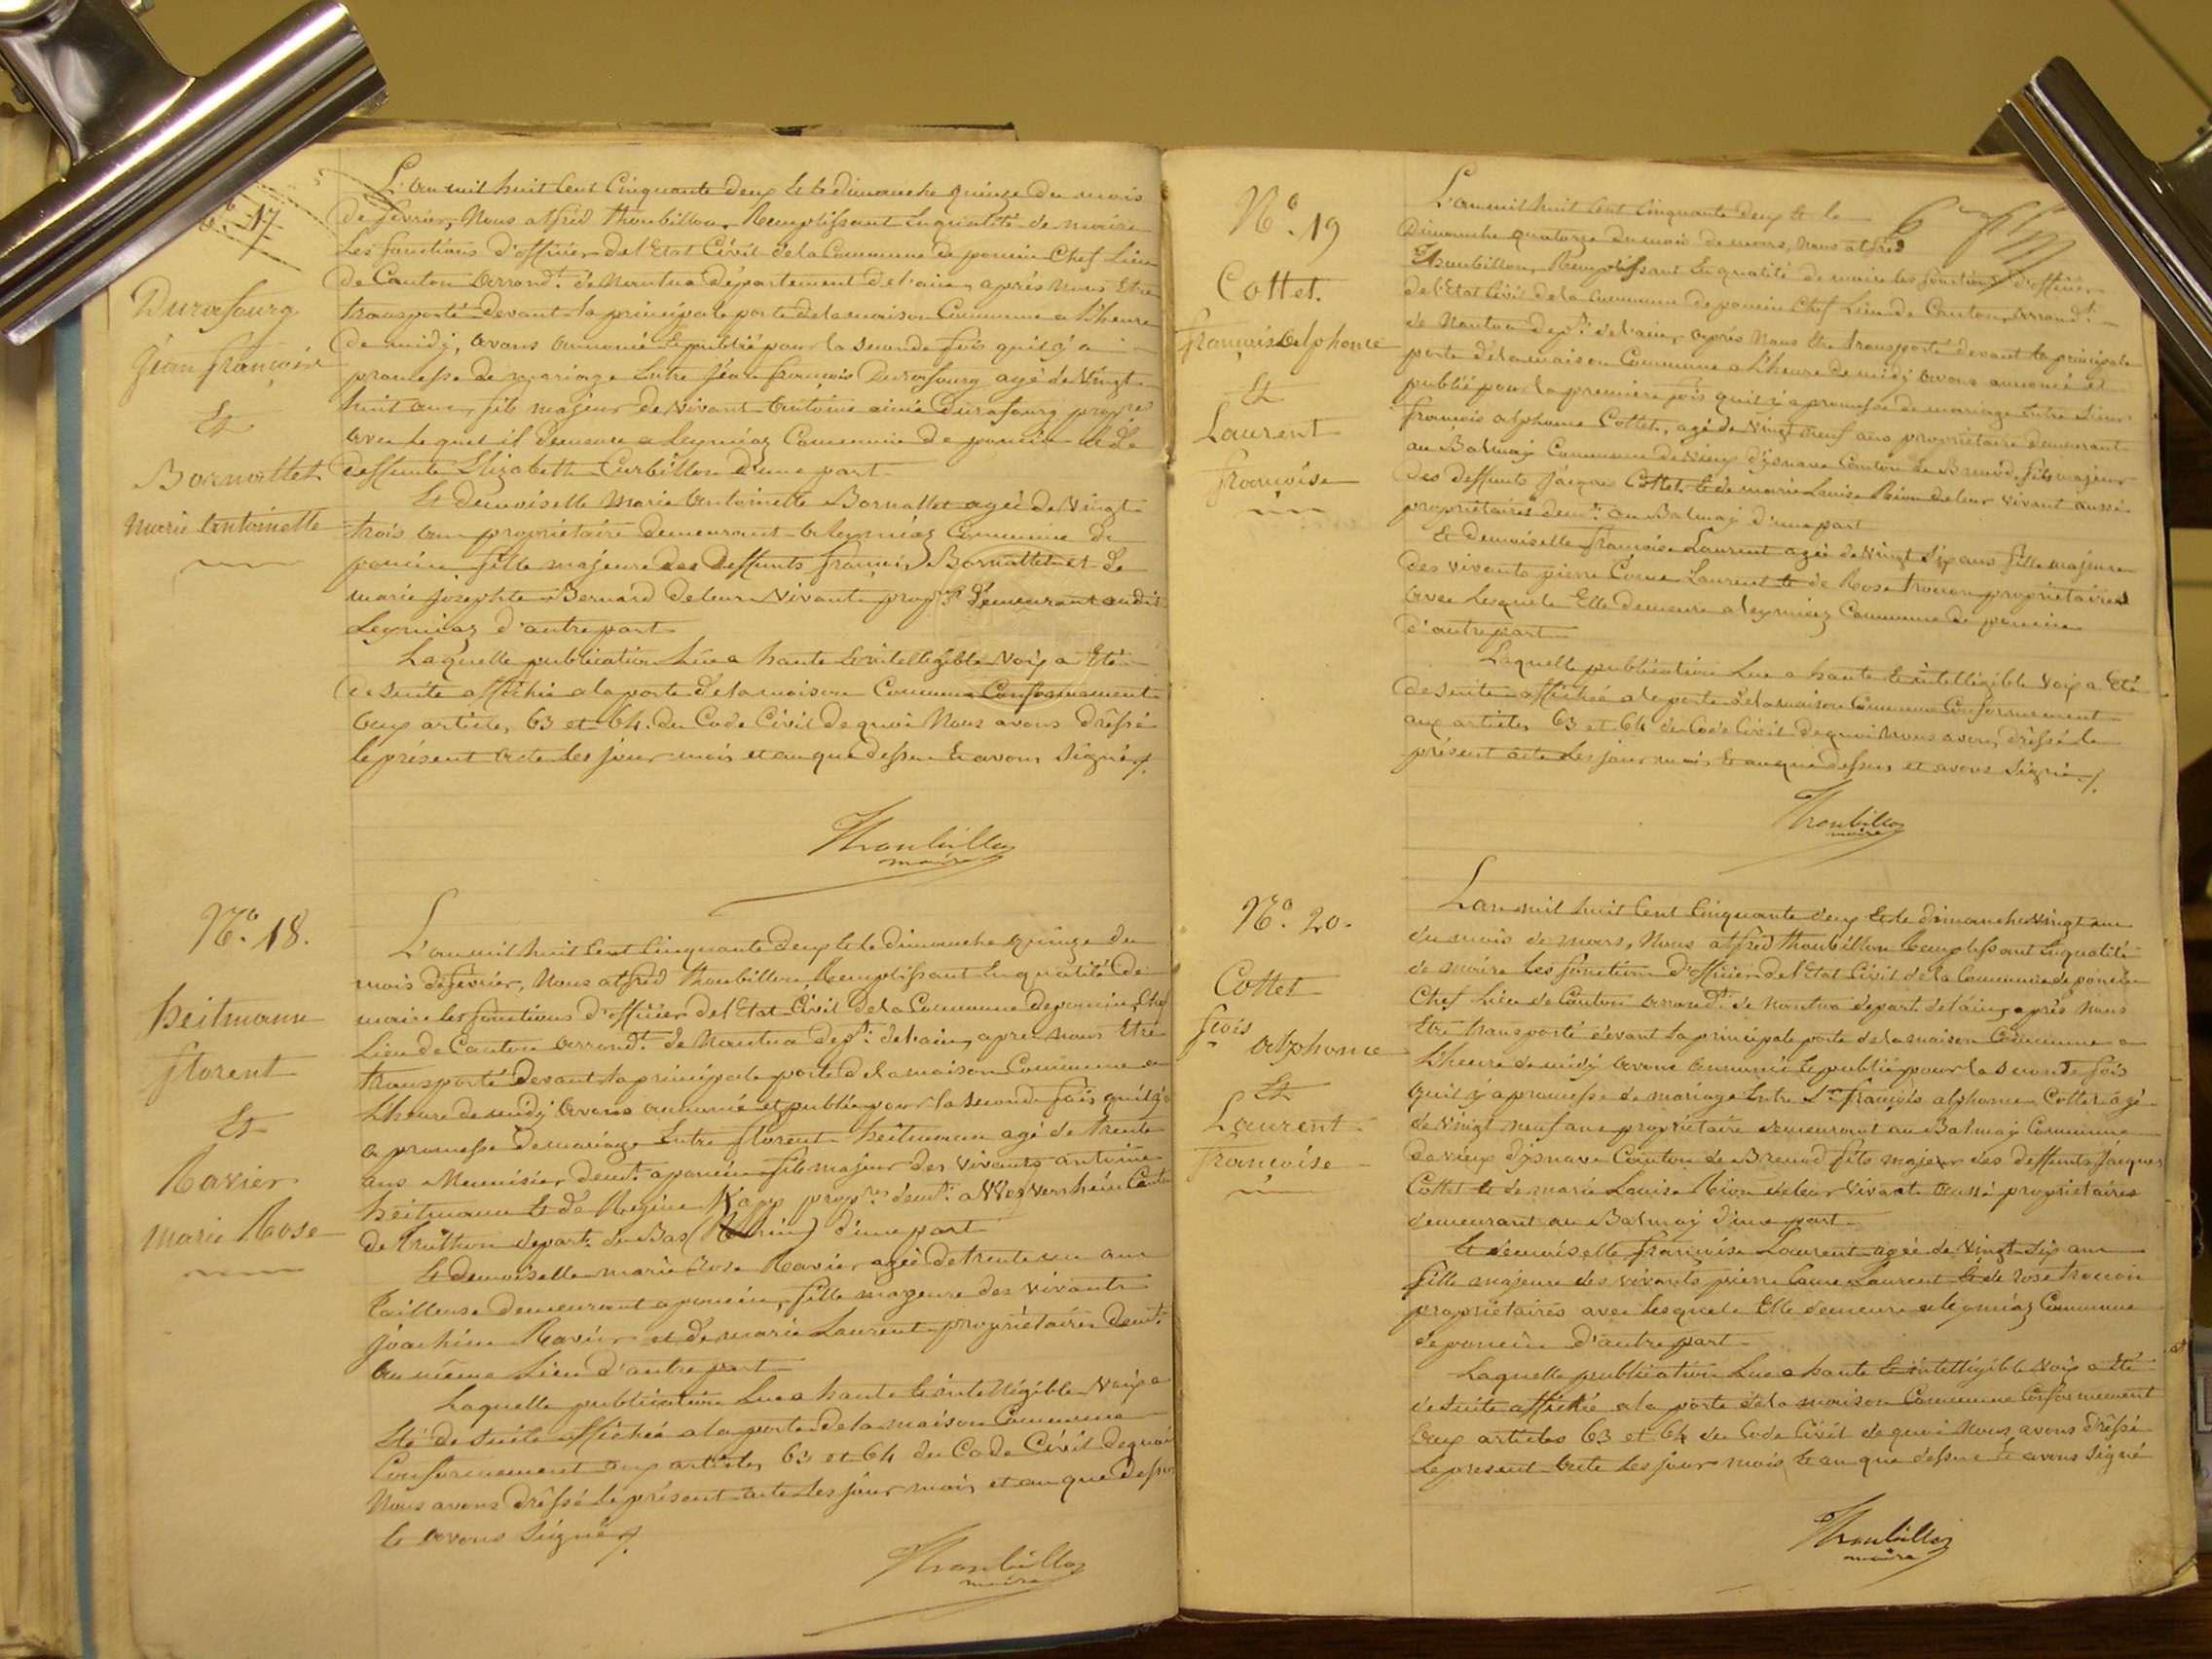 N.º 17
Durafourg
Jean françois
Et
Bornallet
Marie Antoinette
L'an mil huit Cent Cinquante deux Et le dimanche quinze du mois
de février, Nous alfred Thoubillon, Remplissant En qualité de maire
Les fonctions d'officier de l'Etat Civil de la Commune de poncin Chef Lieu
de Canton Arrond.t de Nantua département de l'ain, après nous Etre
transporté devant la principale porte de la maison Commune a L'heure
de midi, avons annoncé Et publié pour la seconde fois qu'il y a
promesse de mariage Entre Jean françois Durafourg agé de Vingt
huit ans, fils majeur de vivant Antoine aimé Durafourg propre
avec lequel il demeure a Leymiaz Commune de poncin Et de
deffunte Elizabeth Curbillon d'une part
Et demoiselle Marie Antoinette Bornallet agée de Vingt
trois ans propriétaire demeurant a Leymiaz Commune de
poncin fille majeure des deffunts françois Bornallet et de
marie josephte Bernard de leur Vivant prop.res demeurant audit
Leymiaz d'autre part
Laquelle publication Lue a haute Et intelligible Voix a Eté
de suite affichée a la porte de la maison Commune Conformement
aux articles 63 et 64. du Code Civil de quoi Nous avons dréssé
le présent acte les jour mois et an que dessus Et avons Signé ./.
Thoubillon
maire
N.º 18.
heitmann
florent
Et
Ravier
Marie Rose
L'an mil huit Cent Cinquante deux Et le dimanche quinze du
mois de février, Nous alfred Thoubillon, Remplissant En qualité de
maire les fonctions d'officier de l'Etat Civil de la Commune de poncin Chef
Lieu de Canton Arrond.t de Nantua dep.t de l'ain, après nous Etre
transporté devant la principale porte de la maison Commune a
L'heure de midi avons annoncé et publié pour la seconde fois qu'il y
a promesse de mariage Entre florent heitmann agé de trente
ans Menuisier dem.t a poncin fils majeur des vivants antoine
heitmann Et de Regine Kapp prop.res dem.t a Weyversheim Canton
de Bruthon depart. du Bas (Rhin) d'une part
Et demoiselle marie Rose Ravier agée de trente un ans
Tailleuse demeurant a poncin, fille majeure des vivants
joachim Ravier et de marie Laurent propriétaires dem.t
au même Lieu d'autre part
Laquelle publication Lue a haute Et intelligible Voix a
Eté de suite affichée a la porte de la maison Commune
Conformement aux articles 63 et 64 du Code Civil de quoi
Nous avons dréssé le présent acte les jour mois et an que dessus
Et avons Signé ./.
Thoubillon
maire
N.º 19
Cottet.
françois Alphonse
Et
Laurent
françoise
L'an mil huit Cent Cinquante deux Et le
Dimanche quatorze du mois de mars, Nous alfred
Thoubillon, Remplissant En qualité de maire les fonctions d'officier
de l'Etat Civil de la Commune de poncin Chef Lieu de Canton, arrond.t
de Nantua dep.t de l'ain, après Nous Etre transporté devant la principale
porte de la maison Commune a L'heure de midi avons annoncé et
publié pour la premiere fois qu'il y a promesse de mariage Entre Sieur
françois alphonse Cottet, agé de Vingt neuf ans propriétaire demeurant
au Balmay Commune de Vieux d'isnave Canton de Brenod, fils majeur
des deffunts Jacques Cottet Et de marie Louise Rion de leur vivant aussi
propriétaires dem.t au Balmay d'une part
Et demoiselle françoise Laurent agée de Vingt Six ans fille majeure
des vivants pierre Come Laurent Et de Rose trocon propriétaires
avec lesquels Elle demeure a leymiaz Commune de poncin
d'autre part
Laquelle publication Lue a haute Et intelligible Voix a Eté
de suite affichée a la porte de la maison Commune Conformement
aux articles 63 et 64 du Code Civil de quoi Nous avons dréssé le
présent acte les jour mois Et an que dessus et avons Signé ./.
Thoubillon
maire
N.º 20.
Cottet
f.çois
Alphonse
Et
Laurent
françoise
L'an mil huit Cent Cinquante deux Et le dimanche Vingt un
du mois de mars, Nous alfred Thoubillon Remplissant En qualité
de maire les fonctions d'officier de l'Etat Civil de la Commune de poncin
Chef Lieu de Canton Arrond.t de Nantua depart. de l'ain, après Nous
Etre transporté devant la principale porte de la maison Commune a
L'heure de midi avons annoncé Et publié pour la seconde fois
qu'il y a promesse de mariage Entre S.r françois alphonse Cottet agé
de Vingt neuf ans propriétaire demeurant au Balmay Commune
de vieux d'isnave Canton de Brenod fils majeur des deffunts Jacques
Cottet Et de marie Louise Rion de leur Vivant aussi propriétaires
demeurant au Balmay d'une part
Et demoiselle françoise Laurent agée de Vingt Six ans
fille majeure des vivants pierre Come Laurent Et de rose trocon
propriétaires avec lesquels Elle demeure a leymiaz Commune
de poncin d'autre part
Laquelle publication Lue a haute Et intelligible Voix a Eté
de suite affichée a la porte de la maison Commune Conformement
aux articles 63 et 64 du Code Civil de quoi Nous avons dréssé
le présent acte les jour mois Et an que dessus Et avons Signé
Thoubillon
maire